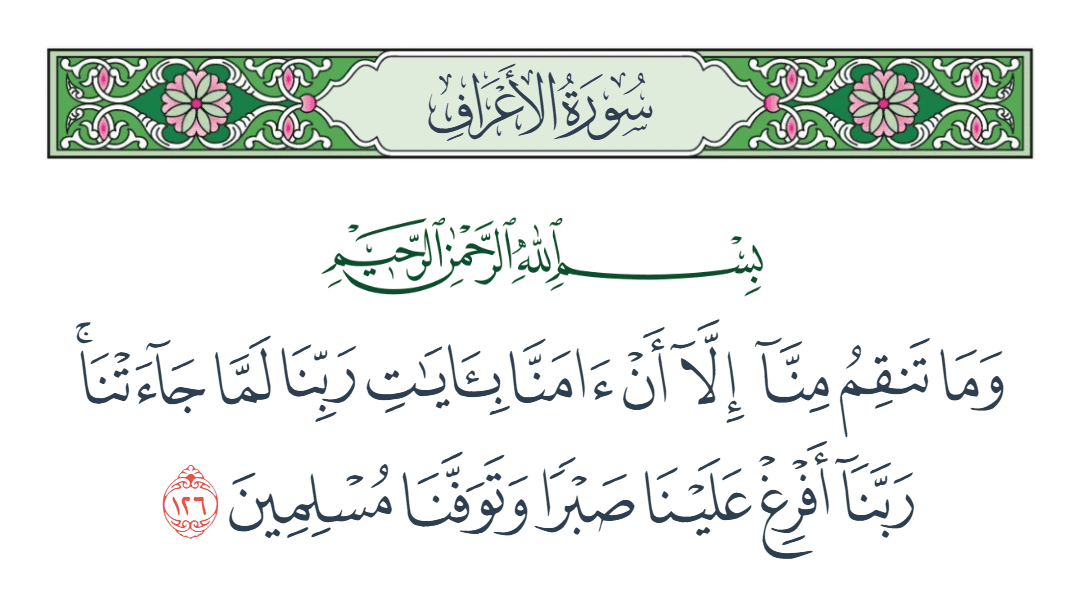 سُورَةُ الأَعْرَافِ
بِسْمِ ٱللَّهِ ٱلرَّحْمَٰنِ ٱلرَّحِيمِ
وَمَا تَنقِمُ مِنَّآ إِلَّآ أَنْ ءَامَنَّا بِـَٔايَٰتِ رَبِّنَا لَمَّا جَآءَتْنَاۚ
رَبَّنَآ أَفْرِغْ عَلَيْنَا صَبْرًا وَتَوَفَّنَا مُسْلِمِينَ ١٢٦